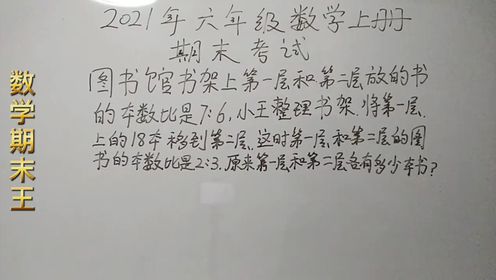 2021年六年级数学上册
期末考试
图书馆书架上第一层和第二层放的书
的本数比是7:6,小王整理书架.将第一层
上的18本移到第二层,这时第一层和第二层的图
书的本数比是2:3.原来第一层和第二层各有多少本书?
数学期末王